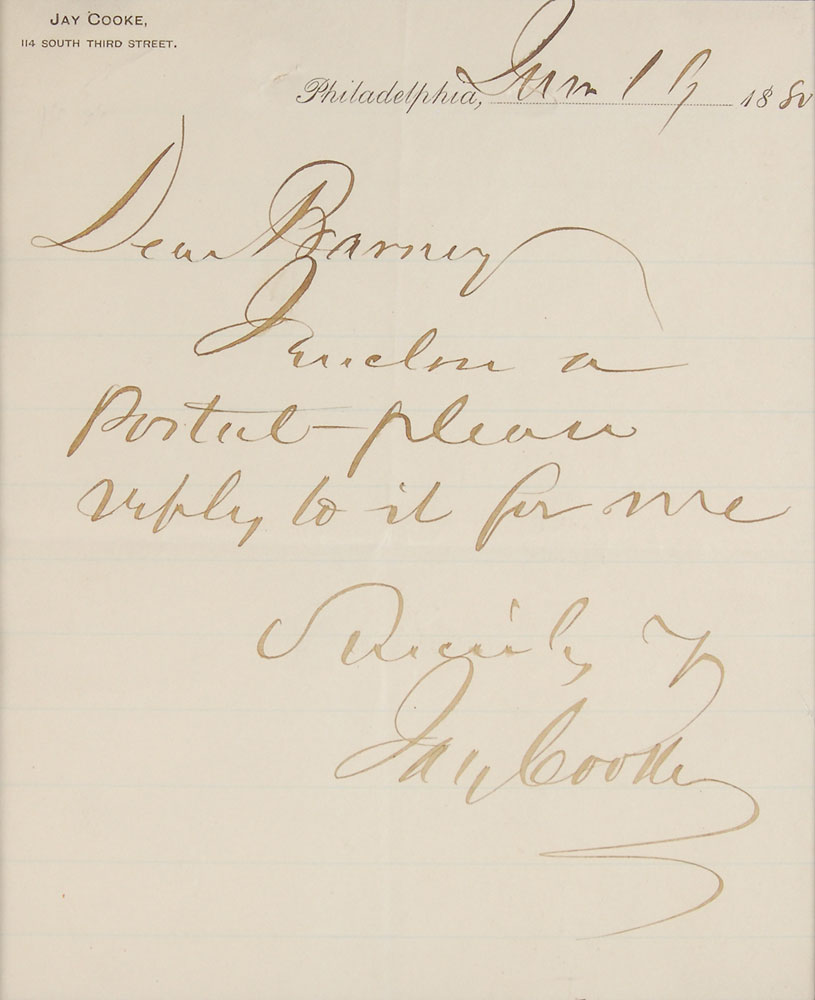 JAY COOKE,
114 SOUTH THIRD STREET.
Philadelphia, June 19 1880
Dear Barney
I enclose a
Postal — please
reply to it for me
Sincerely Yr
Jay Cooke